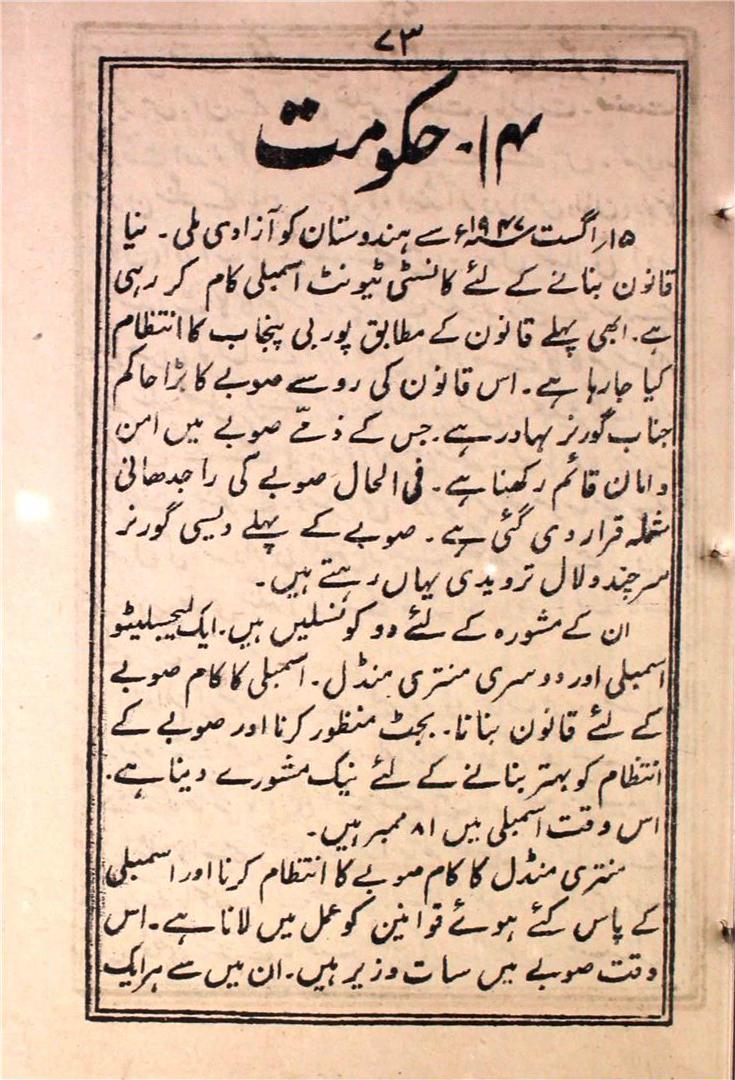 ۷۳
۱۴۔ حکومت
۱۵؍اگست ۱۹۴۷ء سے ہندوستان کو آزادی ملی۔ نیا
قانون بنانے کے لئے کانسٹی ٹیونٹ اسمبلی کام کر رہی
ہے۔ ابھی پہلے قانون کے مطابق پوربی پنجاب کا انتظام
کیا جا رہا ہے۔ اس قانون کی رو سے صوبے کا بڑا حاکم
جناب گورنر بہادر ہے۔ جس کے ذمّے صوبے میں امن
و امان قائم رکھنا ہے۔ فی الحال صوبے کی راجدھانی
شملہ قرار دی گئی ہے۔ صوبے کے پہلے دیسی گورنر
سر چندو لال ترویدی یہاں رہتے ہیں۔
ان کے مشورہ کے لئے دو کونسلیں ہیں۔ ایک لیجسلیٹو
اسمبلی اور دوسری منتری منڈل۔ اسمبلی کا کام صوبے
کے لئے قانون بنانا۔ بجٹ منظور کرنا اور صوبے کے
انتظام کو بہتر بنانے کے لئے نیک مشورے دینا ہے۔
اس وقت اسمبلی میں ۸۱ ممبر ہیں۔
منتری منڈل کا کام صوبے کا انتظام کرنا اور اسمبلی
کے پاس کئے ہوئے قوانین کو عمل میں لانا ہے۔ اس
وقت صوبے میں سات وزیر ہیں۔ ان میں سے ہر ایک